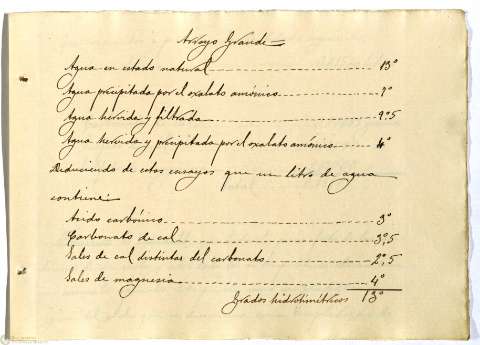 Arroyo Grande
Agua en estado natural 13°
Agua precipitada por el oxalato amónico 7°
Agua hervida y filtrada 9°,5
Agua hervida y precipitada por el oxalato amónico 4°
Deduciendo de estos ensayos que un litro de agua
contiene:
Acido carbónico 3°
Carbonato de cal 3°,5
Sales de cal distintas del carbonato 2°,5
Sales de magnesia 4°
Grados hidrotimétricos 13°